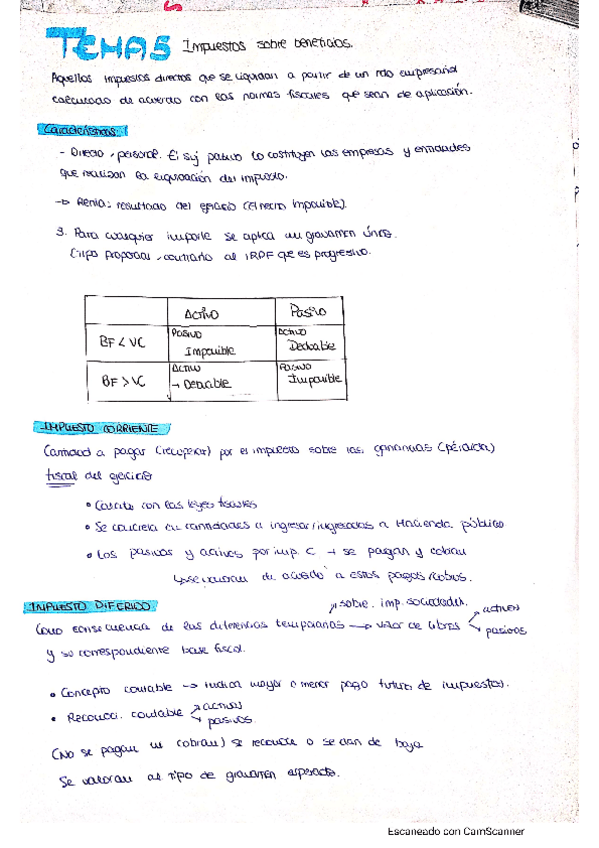 TEMA 5 Impuestos sobre beneficios.
Aquellos impuestos directos que se liquidan a partir de un rdo empresarial
calculado de acuerdo con las normas fiscales que sean de aplicación.
Características
- Directo, personal. El suj pasivo lo costituyen las empresas y entidades
que realizan la liquidación del impuesto.
-> Renta: resultado del ejercicio (el hecho imponible).
3. Para cualquier importe se aplica un gravamen único.
(tipo proporcional, contrario al IRPF que es progresivo.
Activo Pasivo
BF < VC Pasivo Imponible Activo Deducible
BF > VC Activo → Deducible Pasivo Imponible
IMPUESTO CORRIENTE
Cantidad a pagar (recuperar) por el impuesto sobre las ganancias (pérdida)
fiscal del ejercicio
• Coincide con las leyes fiscales
• Se concreta en cantidades a ingresar/ingresadas a Hacienda pública
• Los pasivos y activos por imp. C → se pagan y cobran
↳ se valoran de acuerdo a estos pagos/cobros.
IMPUESTO DIFERIDO
↗ sobre. imp. sociedades.
Como consecuencia de las diferencias temporarias → valor de libros activos
pasivos
y su correspondiente base fiscal.
• Concepto contable → indica mayor o menor pago futuro de impuestos.
• Reconoci. contable activos
pasivos.
(No se pagan ni cobran) se reconoce o se dan de baja
Se valoran al tipo de gravamen esperado.
Escaneado con CamScanner